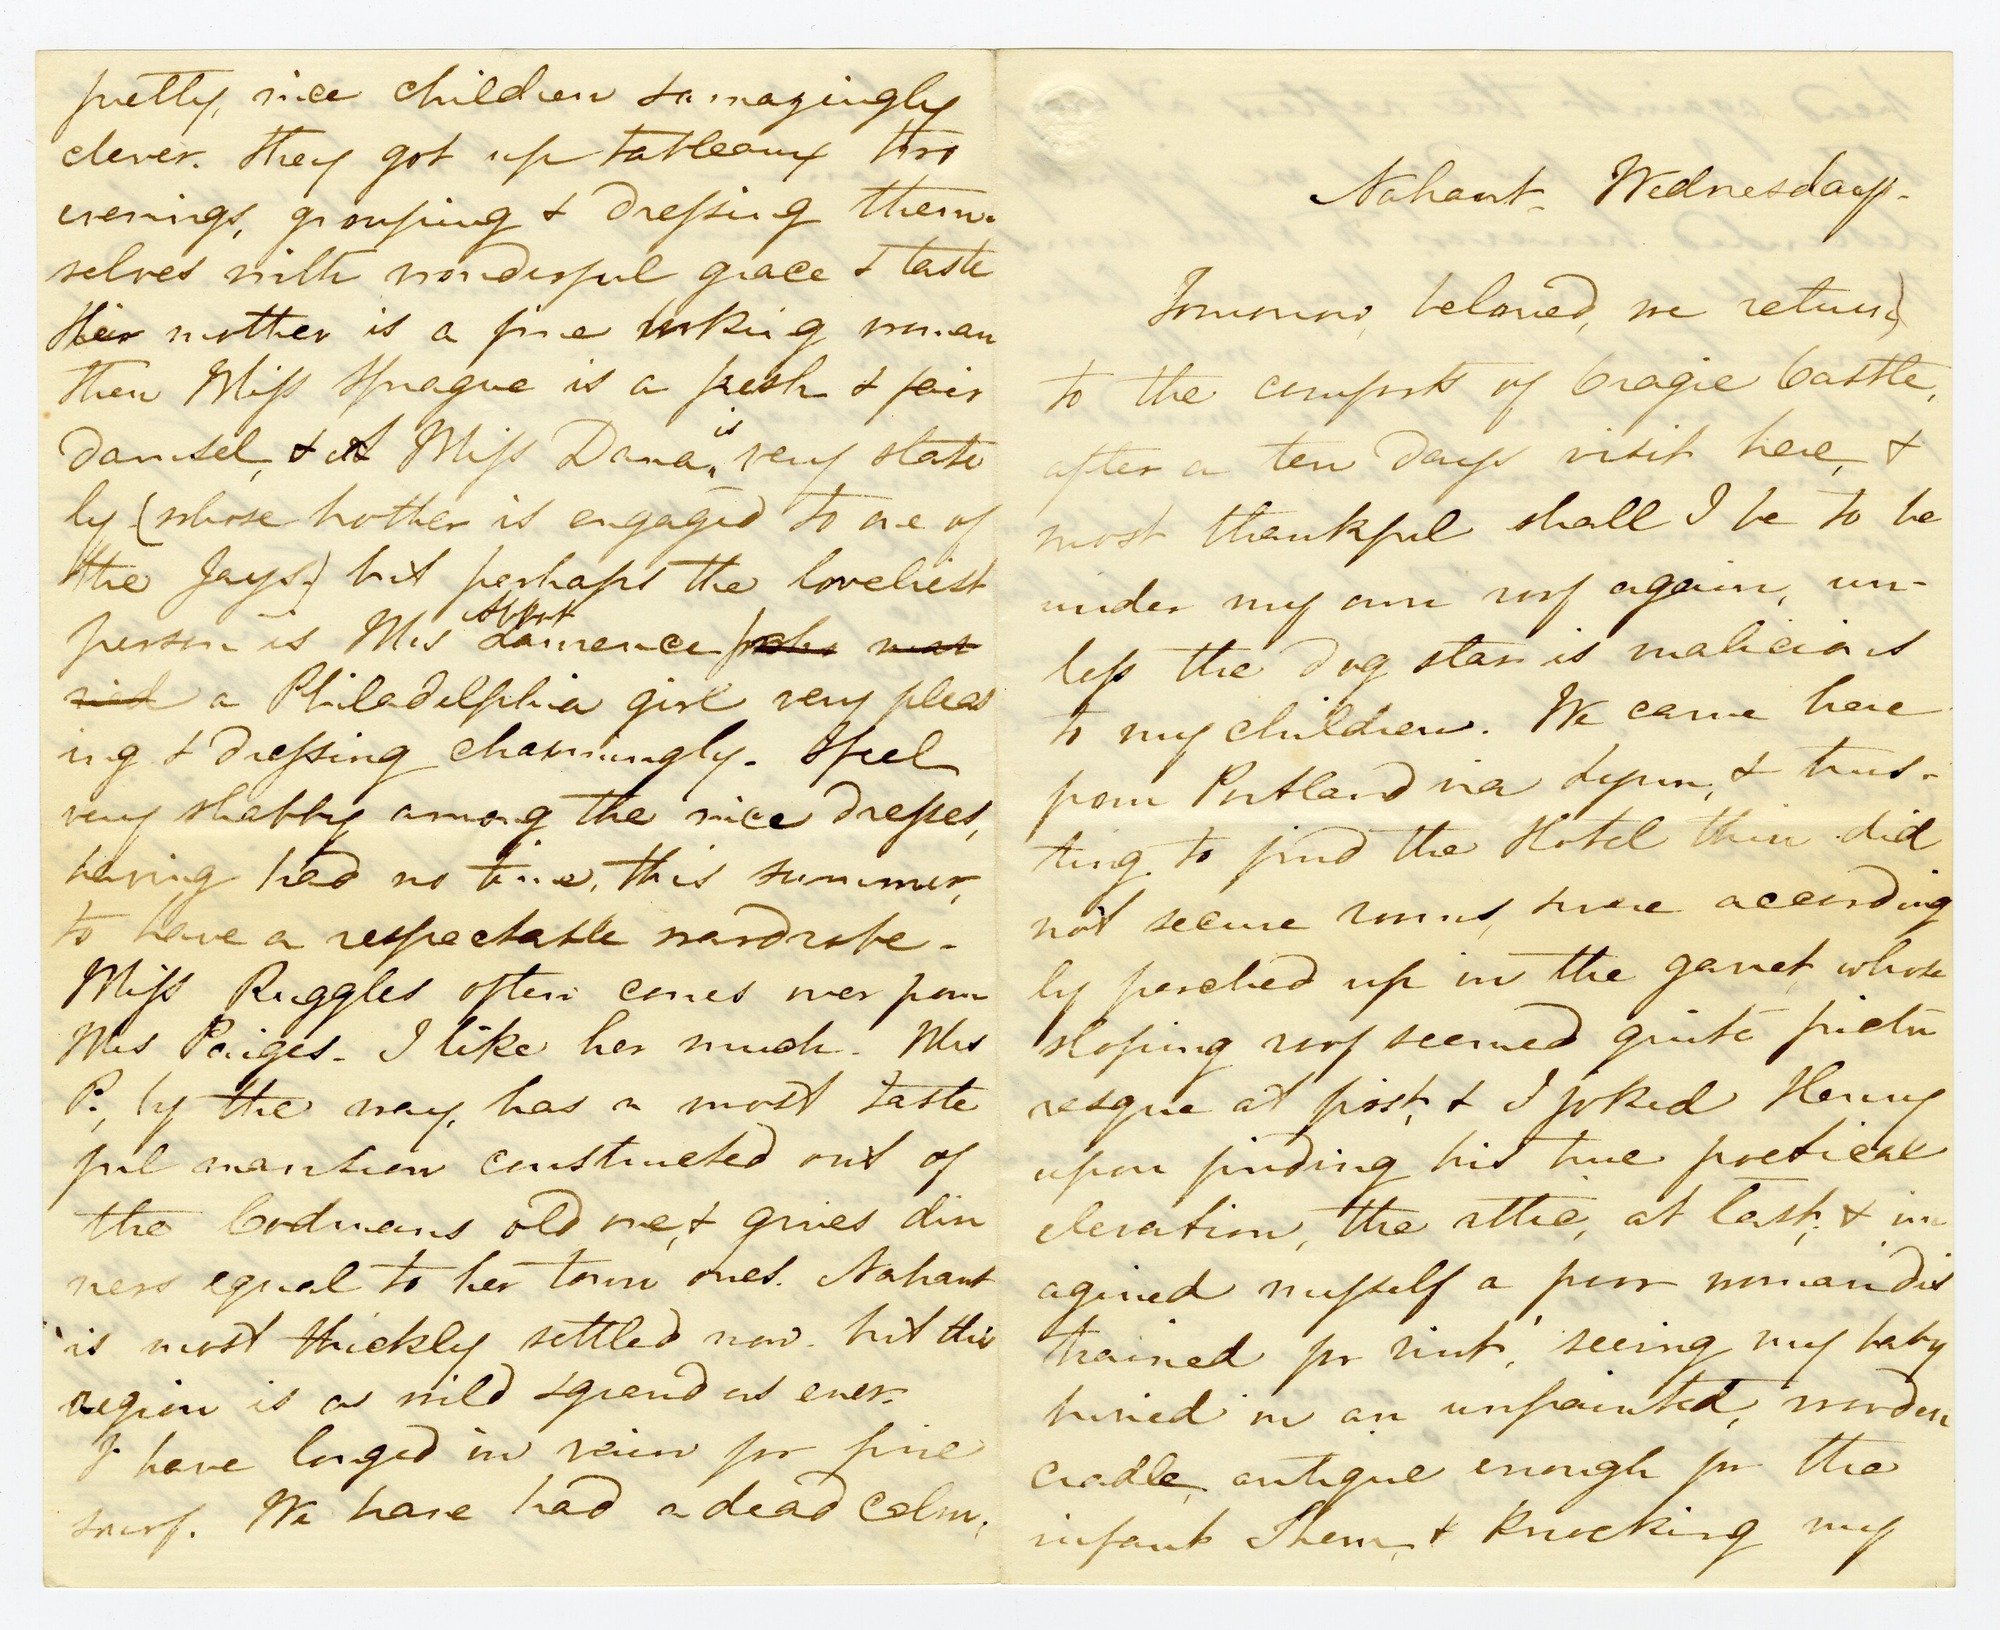 Nahant- Wednesday-
Tomorrow, beloved, we return
to the comforts of Cragie Castle,
after a ten days visit here, &
most thankful shall I be to be
under my own roof again, un-
less the dog star is malicious
to my children. We came here
from Portland via Lynn, & trus-
ting to find the Hotel thin did
not secure rooms, & were according
ly perched up in the garret, whose
sloping roof seemed quite pictu
resque at first, & I joked Henry
upon finding his true poetical
elevation, the attic, at last, & im
agined myself a poor woman 'dis
trained for rint', seeing my baby
buried in an unpainted, wooden
cradle, antique enough for the
infant Shem, & knocking my
pretty, nice children & amazingly
clever. They got up tableaux two
evenings, grouping & dressing them-
selves with wonderful grace & taste
Her mother is a fine looking woman
then Miss Sprague is a fresh & fair
damsel, & Miss Dana is very state
ly (whose brother is engaged to one of
the Jays,) but perhaps the loveliest
person is Mrs Abbot Lawrence
a Philadelphia girl very pleas
ing & dressing charmingly. I feel
very shabby among the nice dresses,
having had no time, this summer,
to have a respectable wardrobe-
Miss Ruggles often comes over from
Mrs Paiges. I like her much. Mrs
P., by the way, has a most taste
ful mansion constructed out of
the Codmans old one, & gives din
ners equal to her town ones. Nahant
is most thickly settled now. but this
region is as wild & grand as ever.
I have longed in vain for fine
surf. We have had a dead calm,